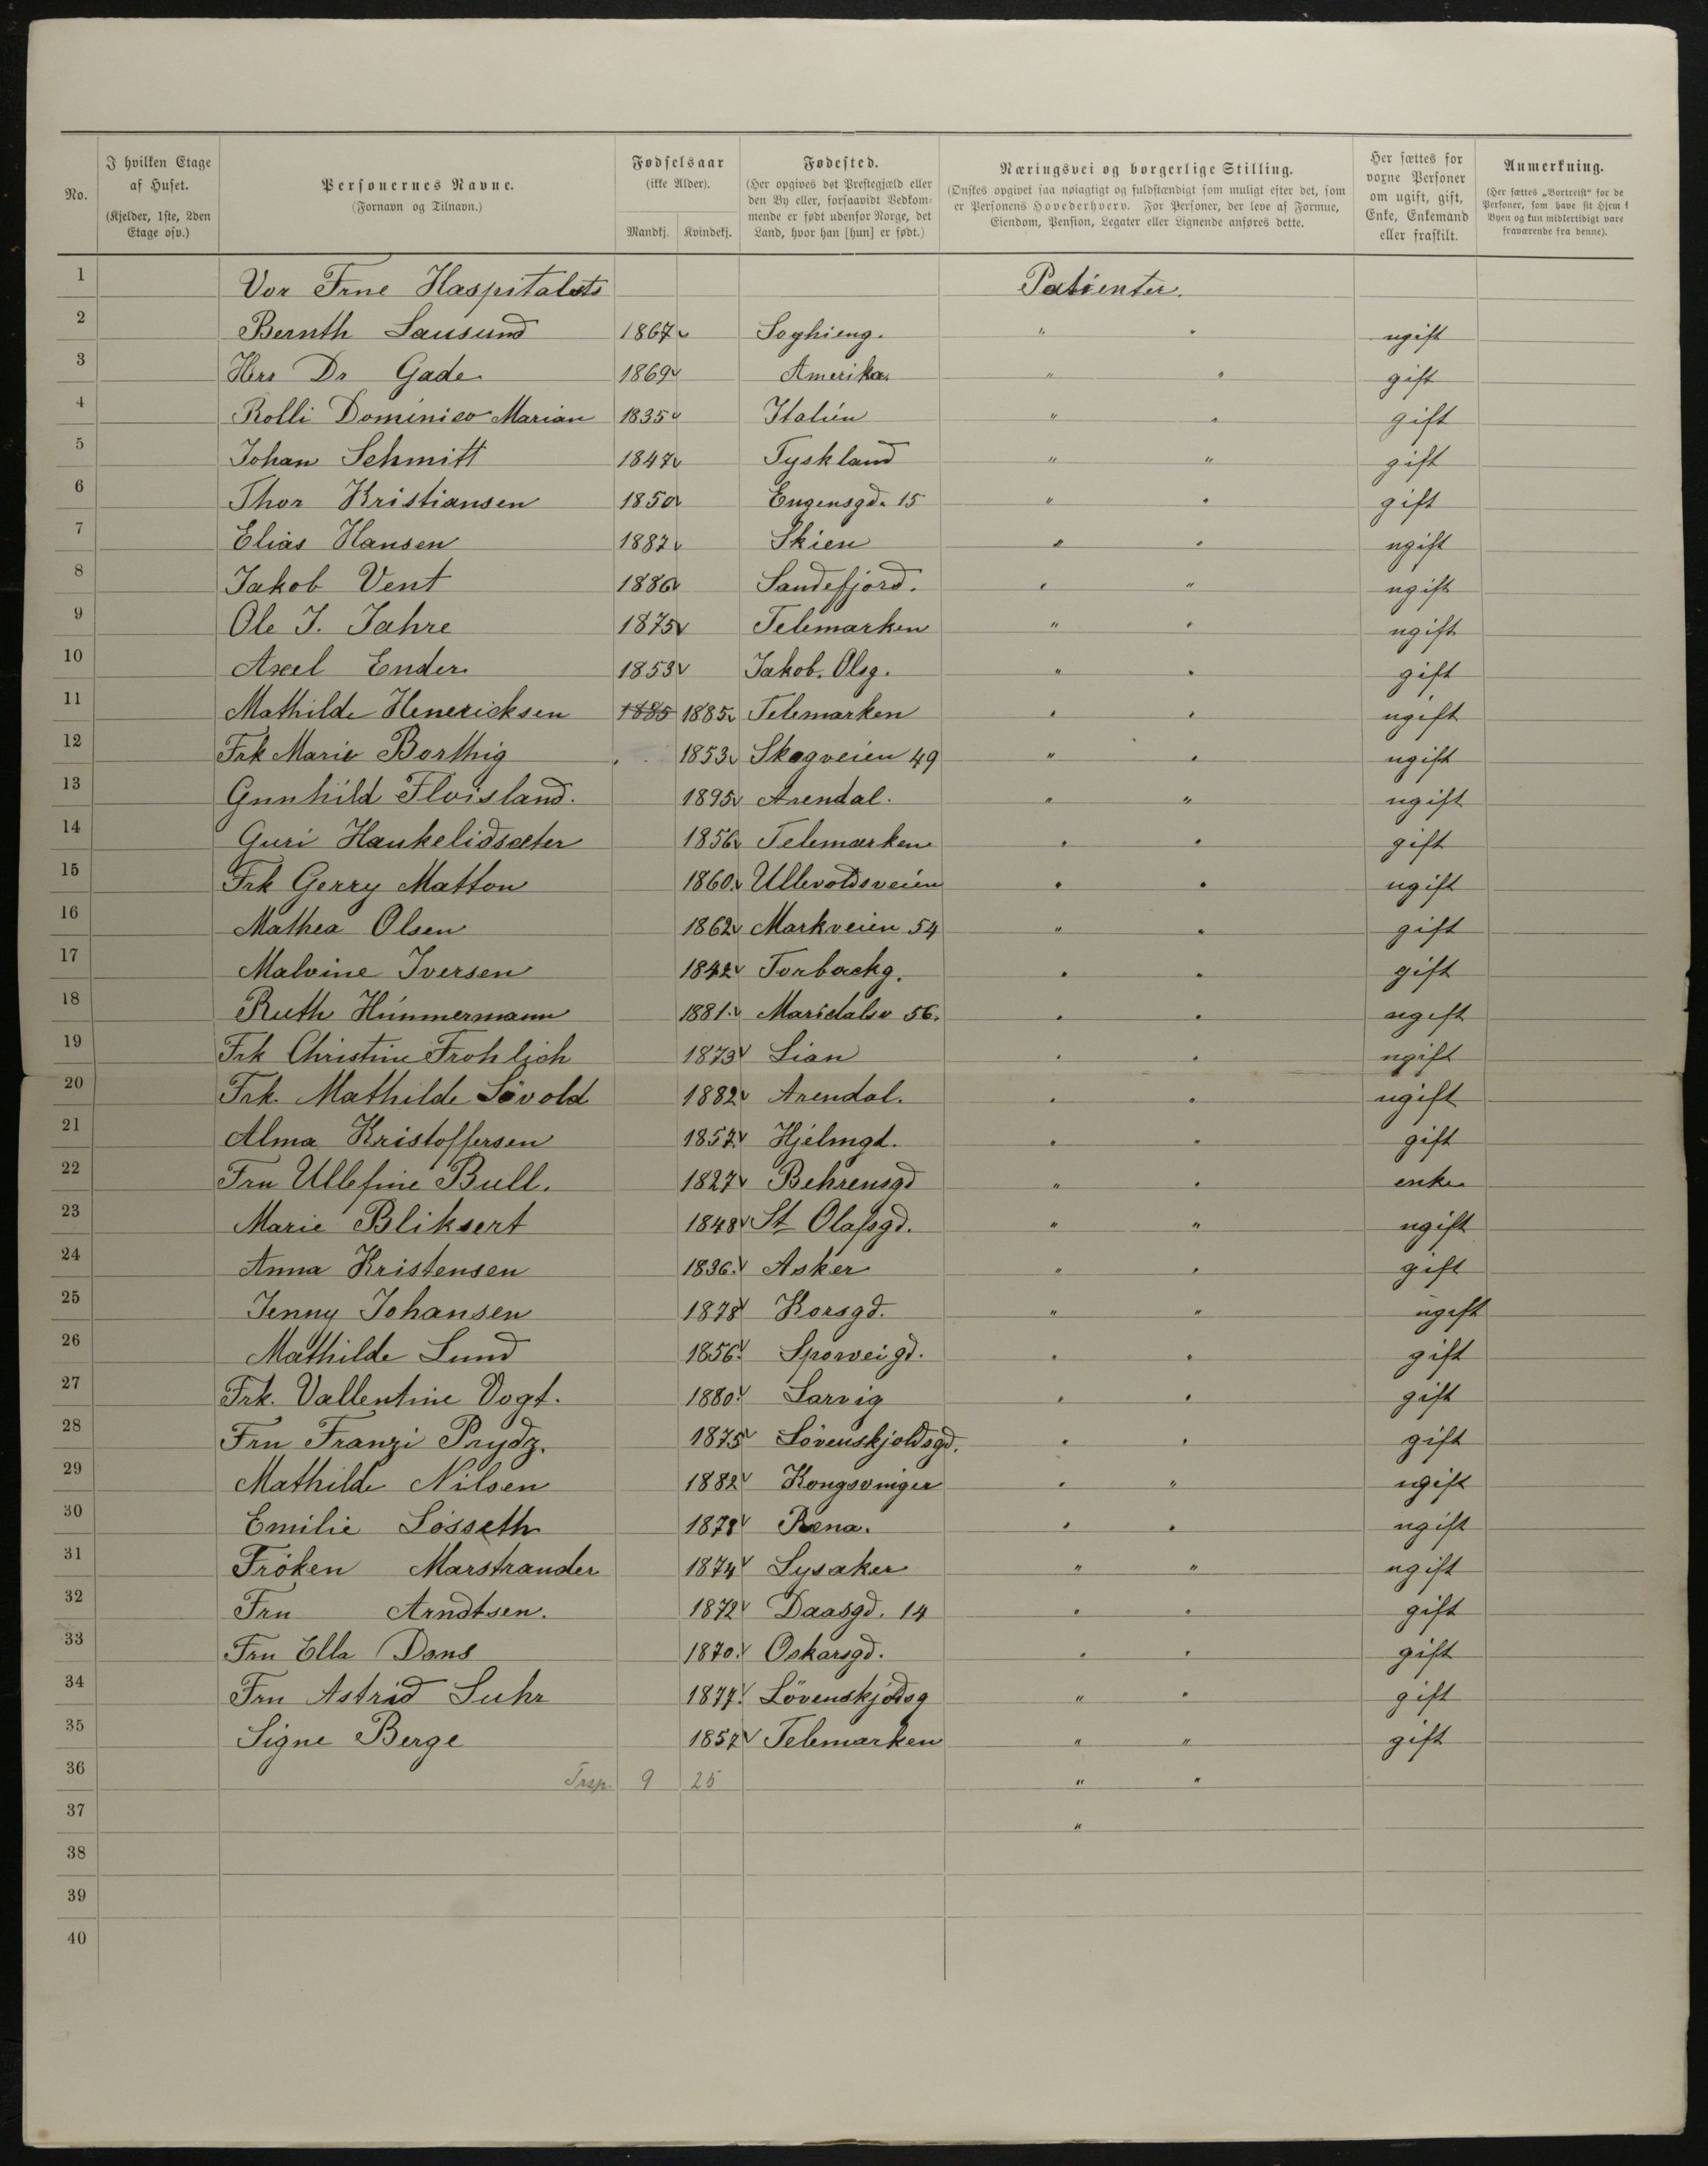 No.
I hvilken Etage af Huset.
(Kjelder, 1ste, 2den Etage osv.)
Personernes Navne.
(Fornavn og Tilnavn.)
Fødselsaar
(ikke Alder).
Mandkj. Kvindekj.
Fødested.
(Her opgives det Prestegjæld eller den By eller, forsaavidt Vedkommende er født udenfor Norge, det Land, hvor han [hun] er født.)
Næringsvei og borgerlige Stilling.
(Ønskes opgivet saa nøiagtigt og fuldstændigt som muligt efter det, som er Personens Hovederhverv. For Personer, der leve af Formue, Eiendom, Pension, Legater eller Lignende anføres dette.
Her sættes for voxne Personer om ugift, gift, Enke, Enkemand eller fraskilt.
Anmerkning.
(Her sættes „Bortreist“ for de Personer, som have sit Hjem i Byen og kun midlertidigt vare fraværende fra denne).
1 Vor Frue Haspitalets Patienter.
2 Bernth Lausund 1867 Soghieng. " " ugift
3 Herr Dr Gade 1869 Amerika " " gift
4 Rolli Dominico Marian 1835 Italien " " gift
5 Johan Schmitt 1847 Tyskland " " gift
6 Thor Kristiansen 1850 Eugensgd. 15 " " gift
7 Elias Hansen 1887 Skien " " ugift
8 Jakob Vent 1886 Sandefjord. " " ugift
9 Ole J. Jahre 1875 Telemarken " " ugift
10 Axel Ender 1853 Jakob. Olsg. " " gift
11 Mathilde Henericksen 1885 1885 Telemarken " " ugift
12 Frk Marie Borthig 1853 Skogveien 49 " " ugift
13 Gunhild Floisland. 1895 Arendal. " " ugift
14 Guri Haukelidsæter 1856 Telemarken " " gift
15 Frk Gerry Matton 1860. Ullevoldsveien " " ugift
16 Mathea Olsen 1862 Markveien 54 " " gift
17 Malvine Iversen 1842 Torbackg. " " gift
18 Ruth Hümmermann 1881. Maridalsv 56. " " ugift
19 Frk Christine Frohlich 1873 Lian " " ugift
20 Frk. Mathilde Sövold 1882 Arendal. " " ugift
21 Alma Kristoffersen 1857. Hjelmgd. " " gift
22 Fru Ullefine Bull. 1827 Behrensgd " " enke
23 Marie Bliksert 1848 St Olafsgd. " " ugift
24 Anna Kristensen 1836. Asker " " gift
25 Jenny Johansen 1878 Korsgd. " " ugift
26 Mathilde Lund 1856. Sporveigd. " " gift
27 Frk. Vallentine Vogt. 1880. Larvig " " gift
28 Fru Franzi Prydz. 1875 Lövenskjoldsgd. " " gift
29 Mathilde Nilsen 1882 Kongsvinger " " ugift
30 Emilie Lösseth 1878 Rena. " " ugift
31 Fröken Marstrander 1874 Lysaker " " ugift
32 Fru Arndtsen. 1872 Daasgd. 14 " " gift
33 Fru Ella Dons 1870. Oskarsgd. " " gift
34 Fru Astrid Luhr 1877. Lövenskjoldsg " " gift
35 Signe Berge 1857 Telemarken " " gift
36 Trsp. 9 25 " "
37 "
38
39
40